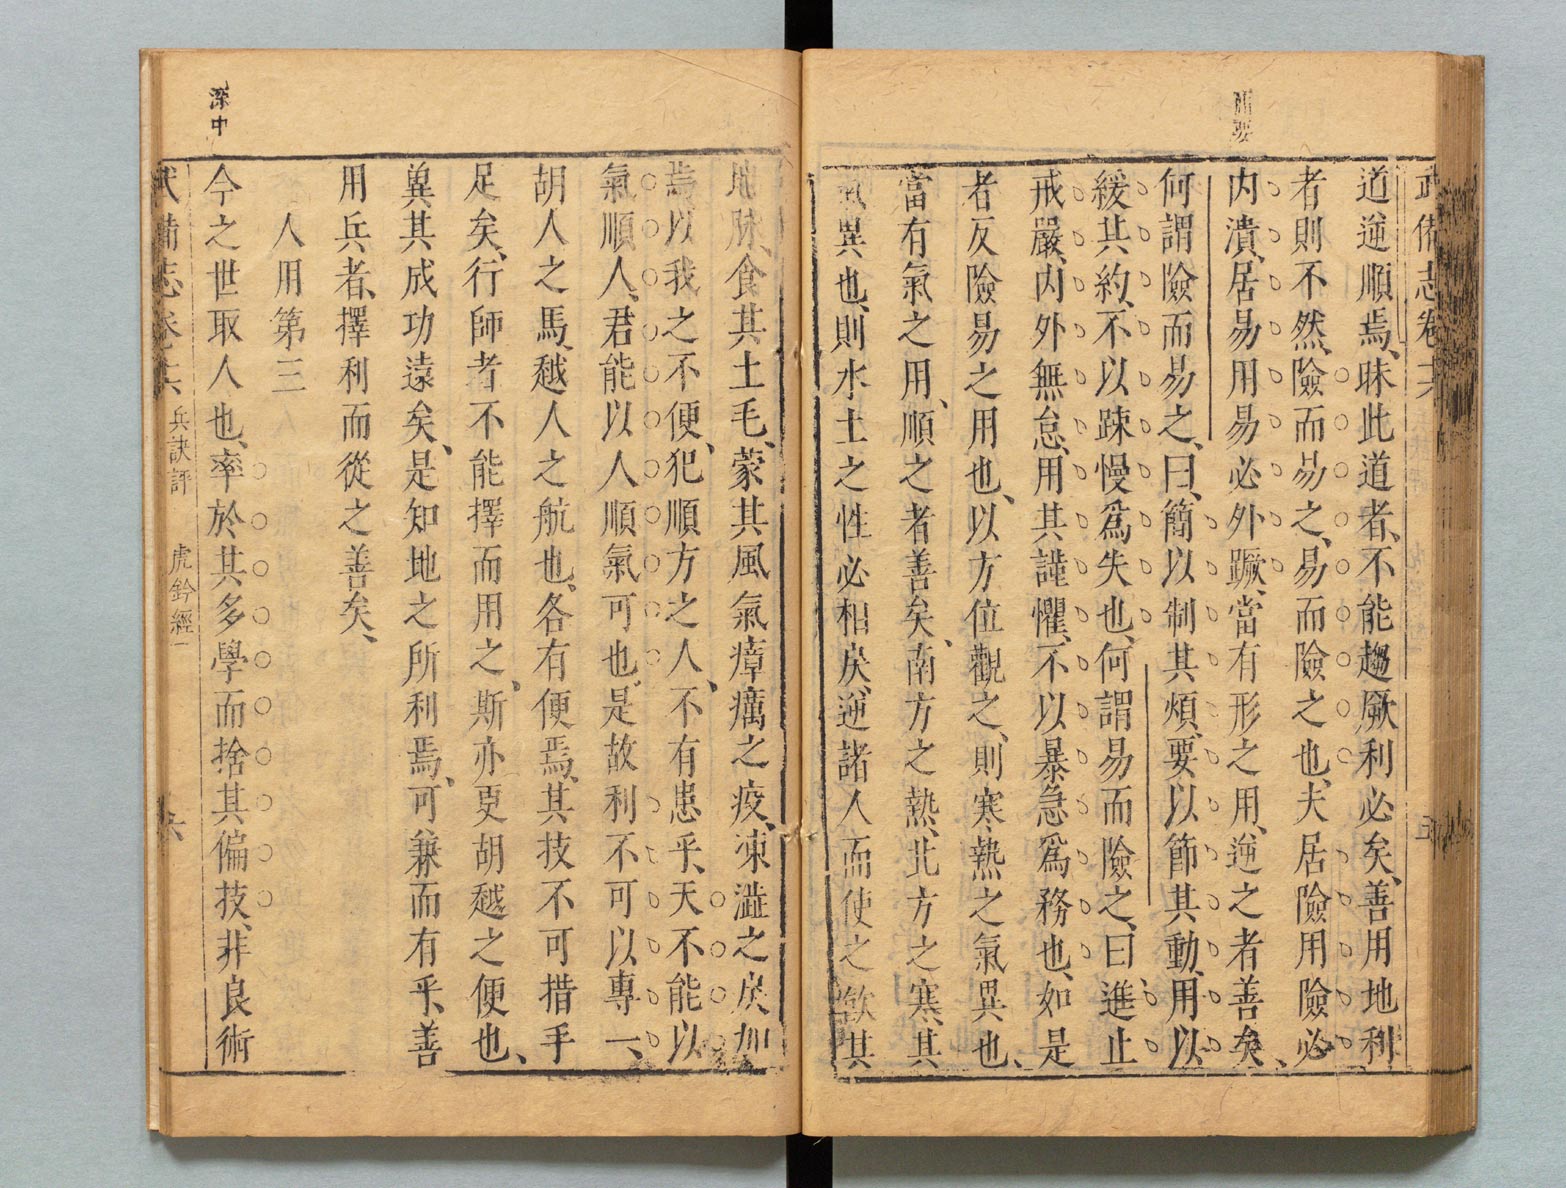 武備志卷十六
五
要
道逆順焉、昧此道者、不能趨厥利必矣、善用地利
者則不然、險而易之、易而險之也、夫居險用險必
内潰、居易用易必外蹶、當有形之用、逆之者善矣、
何謂險而易之、曰、簡以制其煩、要以節其動、用以
緩其約、不以踈慢爲失也、何謂易而險之、曰、進止
戒嚴、内外無怠、用其謹懼、不以暴急爲務也、如是
者反險易之用也、以方位觀之、則寒熱之氣異也、
當有氣之用、順之者善矣、南方之熱、北方之寒、其
氣異也、則水土之性必相戾、逆諸人而使之飲其
地脉、食其土毛、蒙其風氣瘴癘之疫、凍澁之戾加
焉、以我之不便、犯順方之人、不有患乎、天不能以
氣順人、君能以人順氣可也、是故利不可以專一、
胡人之馬、越人之航也、各有便焉、其技不可措手
足矣、行師者不能擇而用之、斯亦更胡越之便也、
兾其成功遠矣、是知地之所利焉、可兼而有乎、善
用兵者、擇利而從之善矣、
人用第三
深中
今之世取人也、率於其多學而捨其偏技、非良術
武備志卷十六 兵訣評 虎鈐經一 六